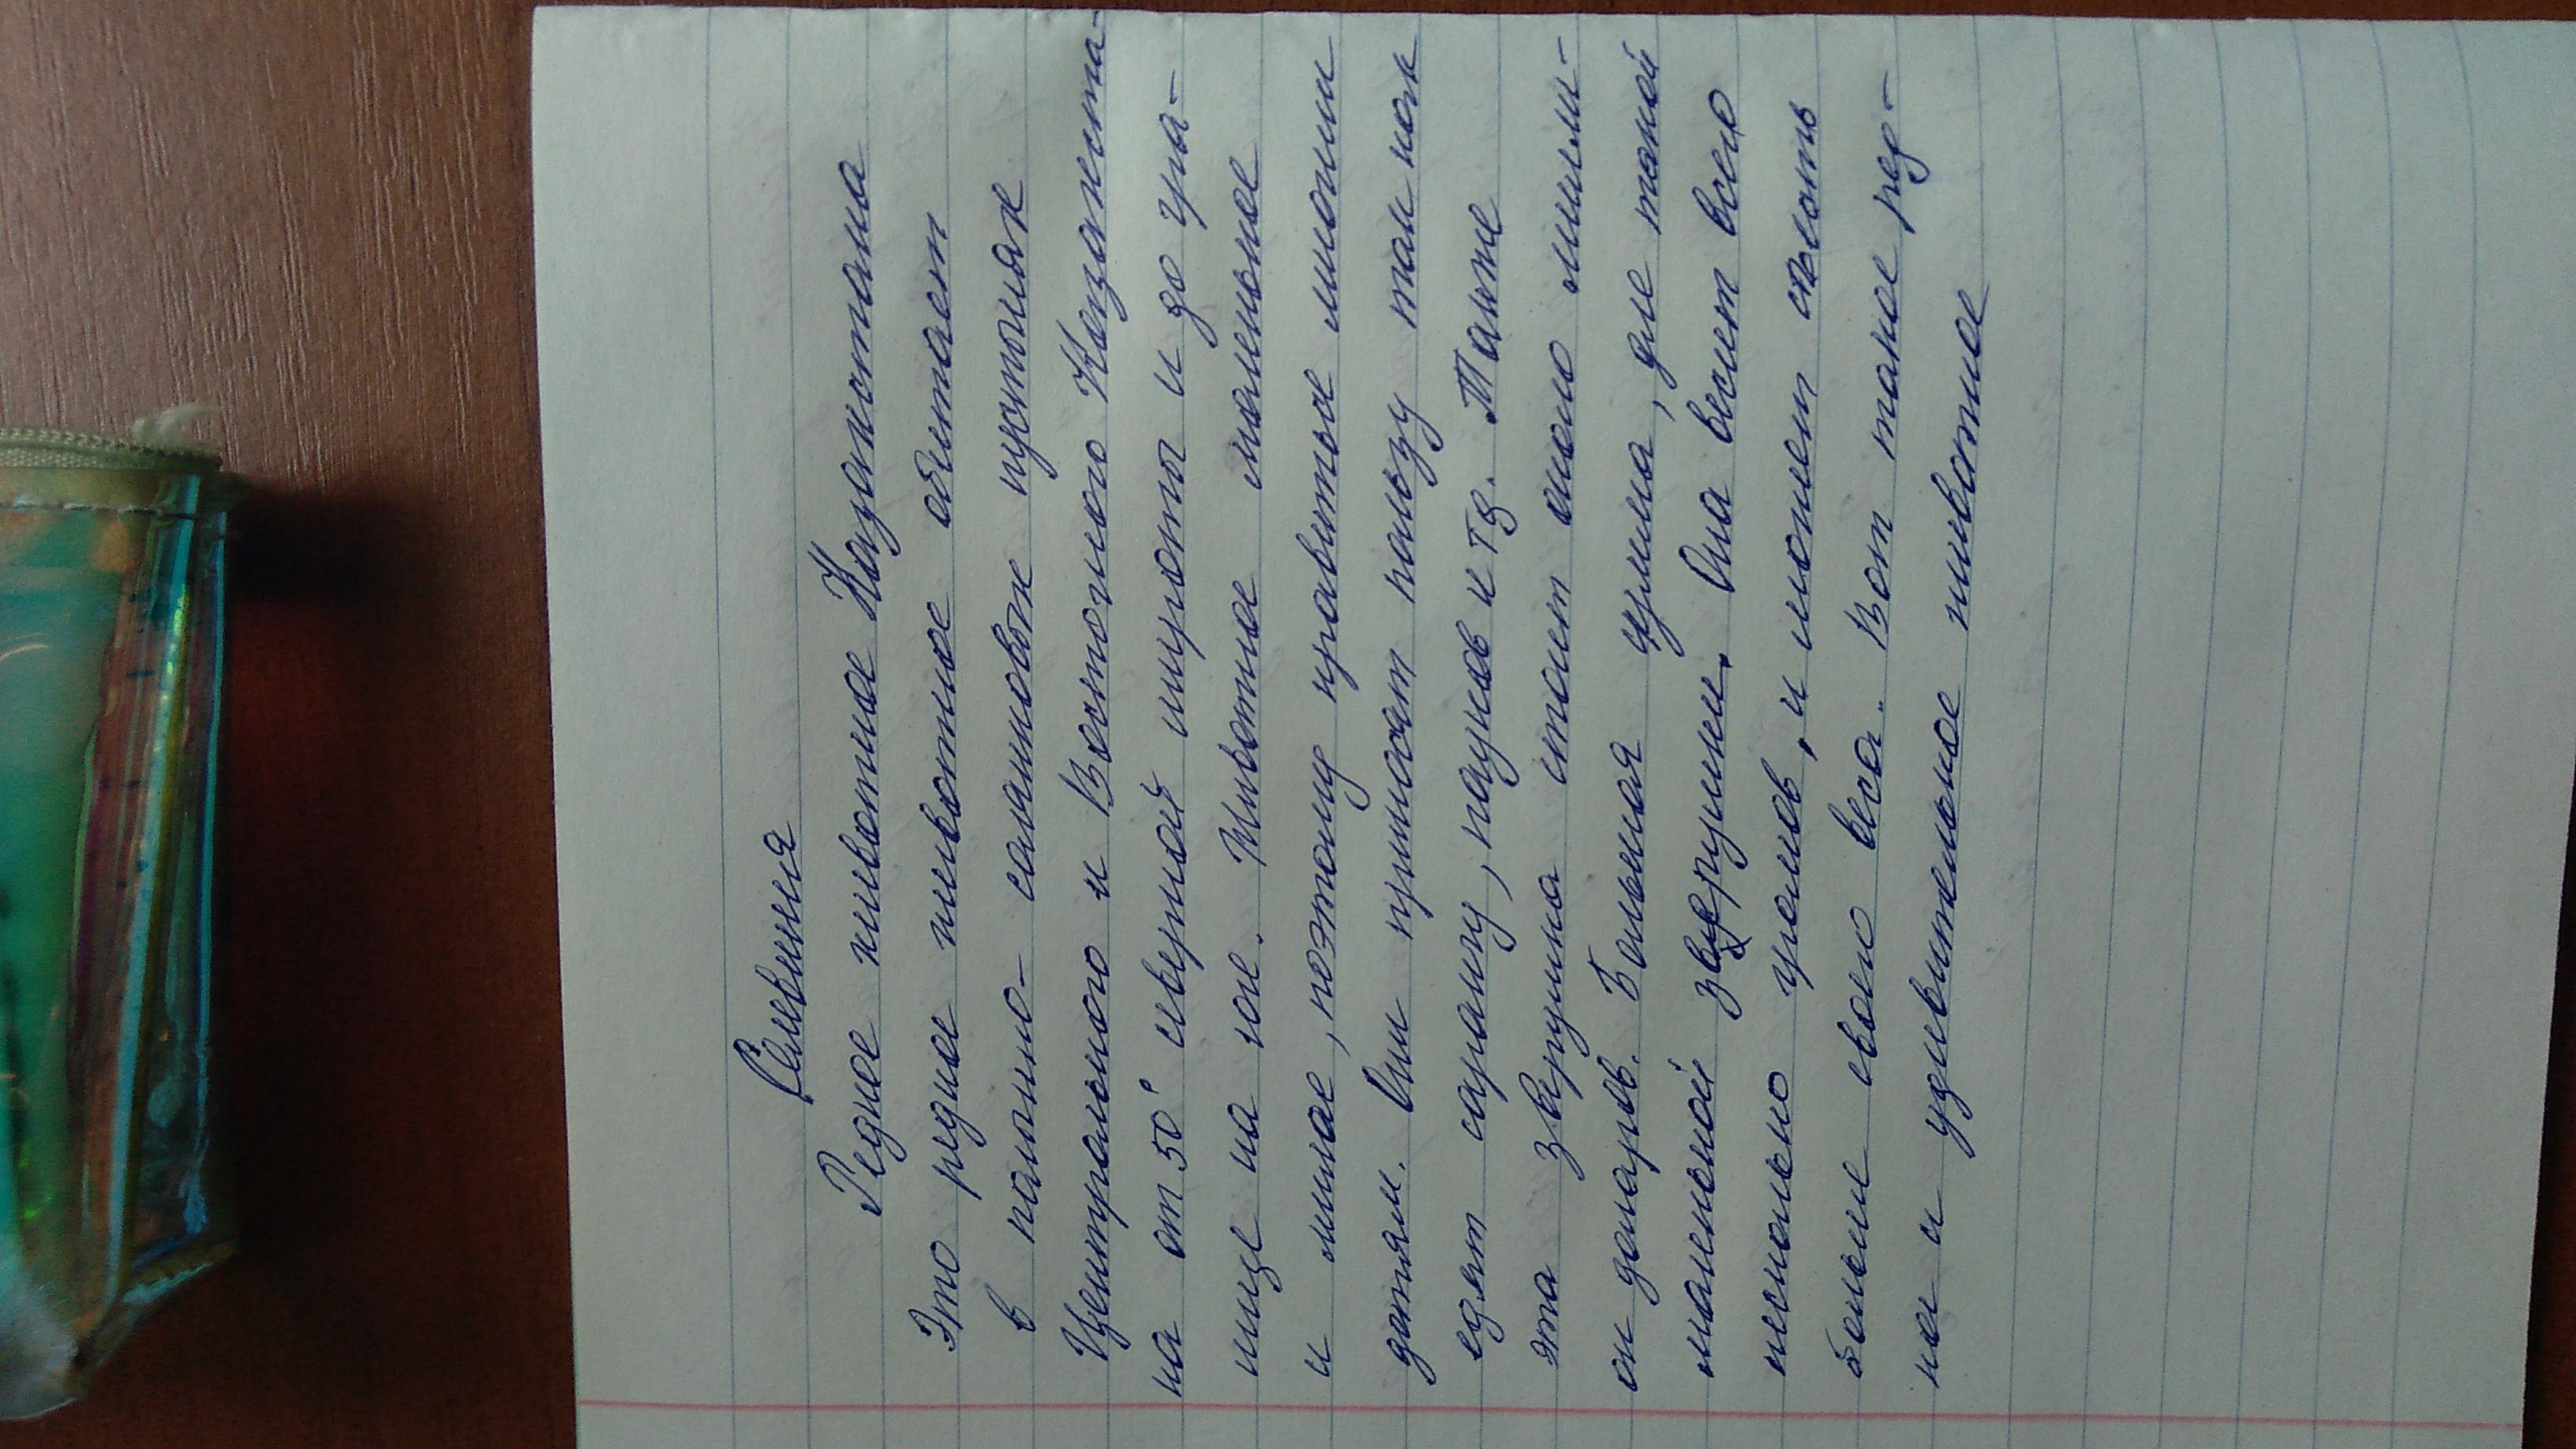 Селевиния
Редкое животное Казахстана
Это редкое животное обитает
в полыно-солянковых пустынях
Центрального и Восточного Казахста-
на от 50° северной широты и до гра-
ницы на юге. Животное маленькое
и милое, поэтому нравится многим
детям. Они приносят пользу так как
едят саранчу, пауков и тд. Также
эта зверушка стоит около милли-
он доларов. Большая сумма, для такой
маленькой зверушки. Она весит всего
несколько грамов, и может съесть
больше своего веса. Вот такое ред-
кое и удивительное животное